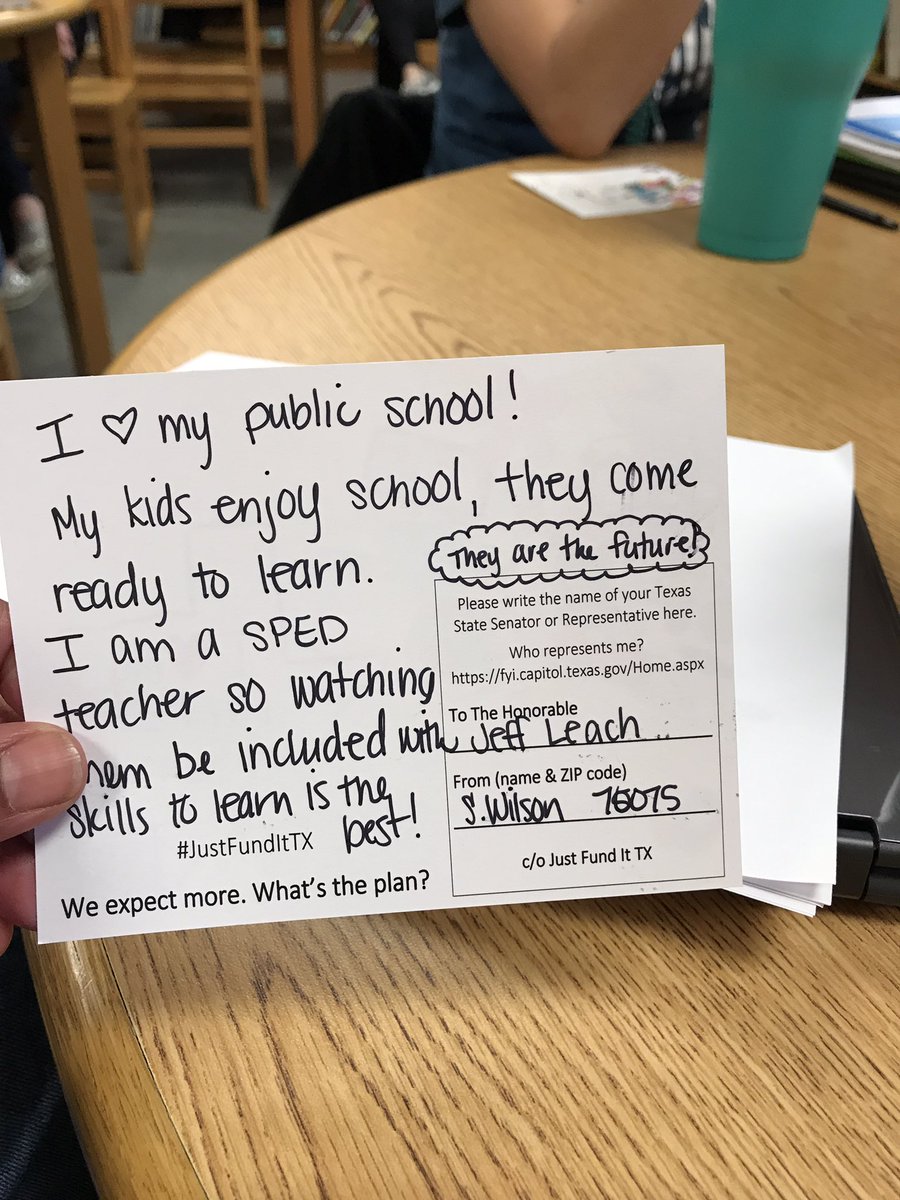 I ♡ my public school!
My kids enjoy school, they come
ready to learn.
They are the future!
I am a SPED
teacher so watching
them be included with
skills to learn is the
best!
#JustFundItTX
We expect more. What's the plan?
Please write the name of your Texas
State Senator or Representative here.
Who represents me?
https://fyi.capitol.texas.gov/Home.aspx
To The Honorable
Jeff Leach
From (name & ZIP code)
S. Wilson 75075
c/o Just Fund It TX